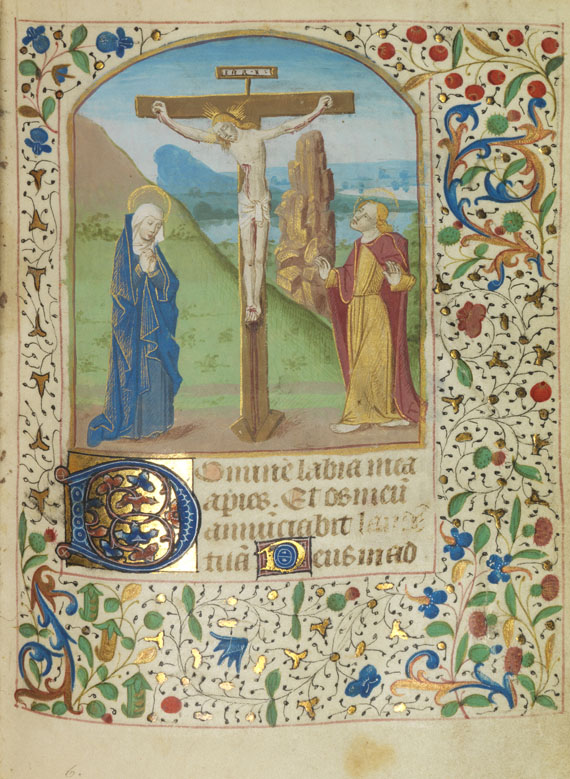 I·N·R·I·
Domine labia mea
apies. Et os meū
annūciabit laudē
tuā Deus in ad
6.